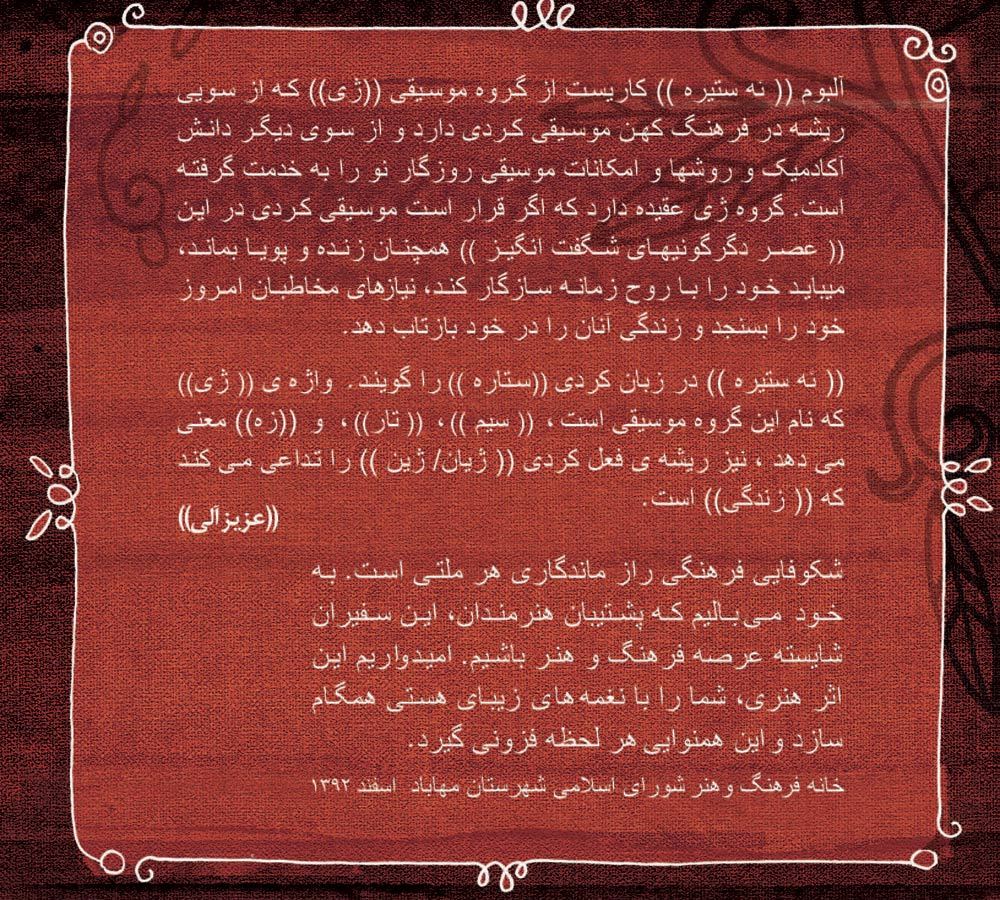 آلبوم (( ئه ستیره )) کاریست از گروه موسیقی ((ژی)) که از سویی
ریشه در فرهنگ کهن موسیقی کردی دارد و از سوی دیگر دانش
آکادمیک و روشها و امکانات موسیقی روزگار نو را به خدمت گرفته
است. گروه ژی عقیده دارد که اگر قرار است موسیقی کردی در این
(( عصر دگرگونیهای شگفت انگیز )) همچنان زنده و پویا بماند،
میباید خود را با روح زمانه سازگار کند، نیازهای مخاطبان امروز
خود را بسنجد و زندگی آنان را در خود بازتاب دهد.
(( ئه ستیره )) در زبان کردی ((ستاره )) را گویند. واژه ی (( ژی))
که نام این گروه موسیقی است، (( سیم ))، (( تار))، و ((زه)) معنی
می دهد ، نیز ریشه ی فعل کردی (( ژیان/ ژین )) را تداعی می کند
که (( زندگی)) است.
((عزیزآلی))
شکوفایی فرهنگی راز ماندگاری هر ملتی است. به
خود می بالیم که پشتیبان هنرمندان، این سفیران
شایسته عرصه فرهنگ و هنر باشیم. امیدواریم این
اثر هنری، شما را با نغمه های زیبای هستی همگام
سازد و این همنوایی هر لحظه فزونی گیرد.
خانه فرهنگ و هنر شورای اسلامی شهرستان مهاباد اسفند ۱۳۹۲